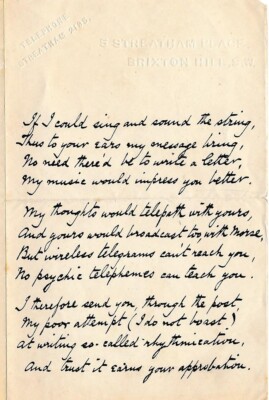 TELEPHONE
STREATHAM
5 STREATHAM PLACE,
BRIXTON HILL, S.W.
If I could sing and sound the string,
Thus to your Ears my message bring,
No need there'd be to write a letter,
My music would impress you better.
My thoughts would telepath with yours,
And yours would broadcast too with Morse,
But wireless telegrams can't reach you,
No psychic telephemes can teach you.
I therefore send you, through the post,
My poor attempt (I do not boast)
At writing so-called rhythmication,
And trust it earns your approbation.